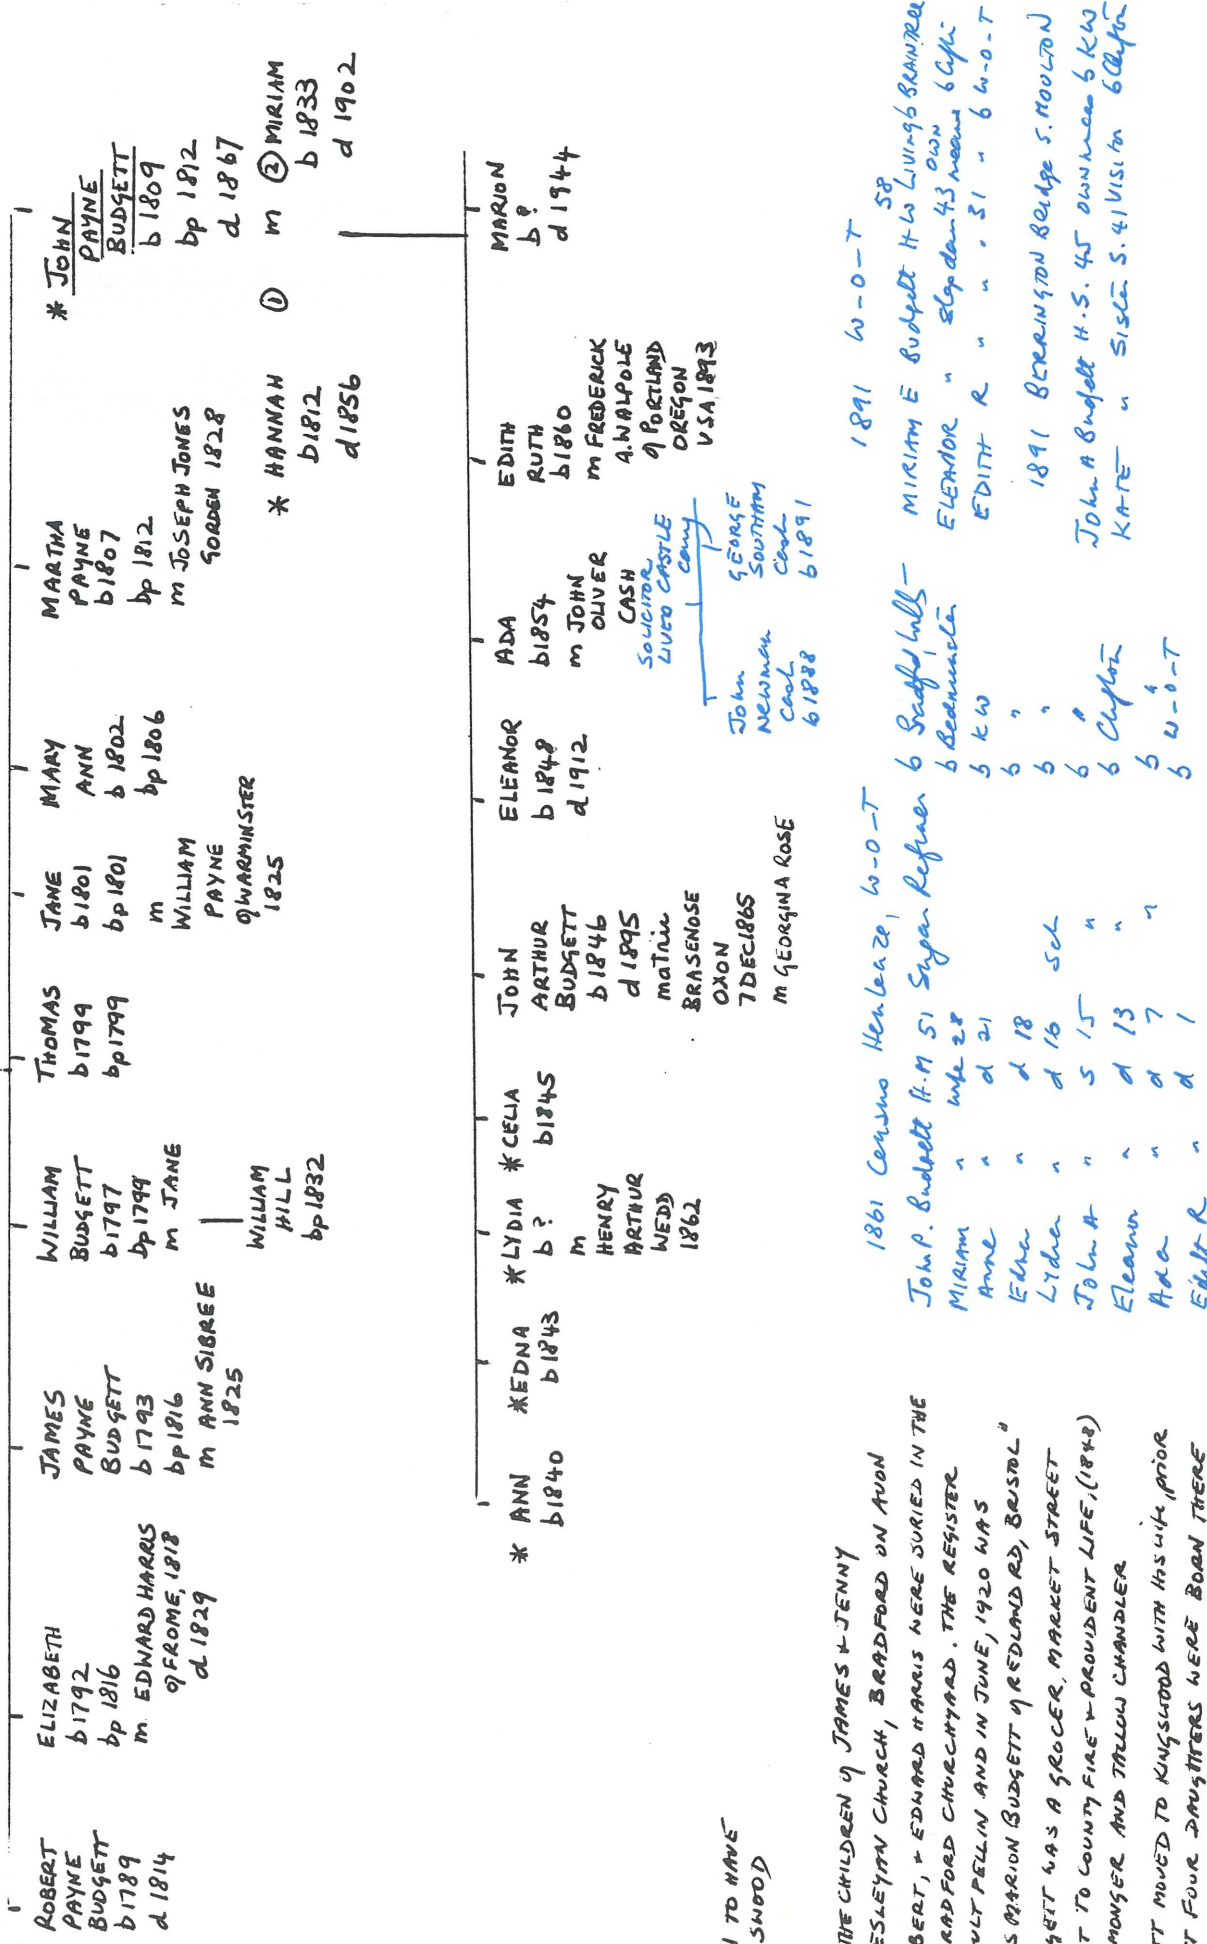 ROBERT
PAYNE
BUDGETT
b 1789
d 1814
ELIZABETH
b 1792
bp 1816
m. EDWARD HARRIS
of FROME, 1818
d 1829
JAMES
PAYNE
BUDGETT
b 1793
bp 1816
m ANN SIBREE
1825
WILLIAM
BUDGETT
b 1797
bp 1799
m JANE
WILLIAM
HILL
bp 1832
THOMAS
b 1799
bp 1799
JANE
b 1801
bp 1801
m
WILLIAM
PAYNE
of WARMINSTER
1825
MARY
ANN
b 1802
bp 1806
MARTHA
PAYNE
b 1807
bp 1812
m JOSEPH JONES
GORDEN 1828
* JOHN
PAYNE
BUDGETT
b 1809
bp 1812
d 1867
* HANNAH ① m ② MIRIAM
b 1812
d 1856
b 1833
d 1902
* ANN
b 1840
* EDNA
b 1843
* LYDIA
b ?
m
HENRY
ARTHUR
WEDD
1862
* CELIA
b 1845
JOHN
ARTHUR
BUDGETT
b 1846
d 1895
matric
BRASENOSE
OXON
7 DEC 1865
m GEORGINA ROSE
ELEANOR
b 1848
d 1912
ADA
b 1854
m JOHN
OLIVER
CASH
SOLICITOR
LIVED CASTLE
Cary
John
Newman
Cash
b 1888
GEORGE
SOUTHAM
Cash
b 1891
EDITH
RUTH
b 1860
m FREDERICK
A. WALPOLE
of PORTLAND
OREGON
USA, 1893
MARION
b ?
d 1944
I TO HAVE
SWOOD
THE CHILDREN of JAMES & JENNY
ESLEYAN CHURCH, BRADFORD ON AVON
BERT, & EDWARD HARRIS WERE BURIED IN THE
RADFORD CHURCHYARD. THE REGISTER
ULT FELL IN AND IN JUNE, 1920 WAS
S MARION BUDGETT of REDLAND RD, BRISTOL"
GETT WAS A GROCER, MARKET STREET
T TO COUNTY FIRE & PROVIDENT LIFE, (1848)
MONGER AND TALLOW CHANDLER
TT MOVED TO KINGSWOOD WITH HIS WIFE, PRIOR
T FOUR DAUGHTERS WERE BORN THERE
1861 Census Henleaze, W-O-T
John P. Budgett H. M 51 Sugar Refiner b
MIRIAM " wife 28 b Bedminster
Anne " d 21 b KW
Edna " d 18 b "
Lydia " d 16 Sch b "
John A " s 15 " b "
Eleanor " d 13 " b Clifton
Ada " d 7 " b "
Edith R " d 1 b W-O-T
1891 W-O-T
MIRIAM E Budgett H W 58 Living b BRAINTREE
ELEANOR " Step daur 43 own means b Clifton
EDITH R " " " 31 " b W-O-T
1891 BERRINGTON Bridge S. MOULTON
John A Budgett H. S. 45 OWN means b KW
KATE " Sister S. 41 VISITOR b Clifton